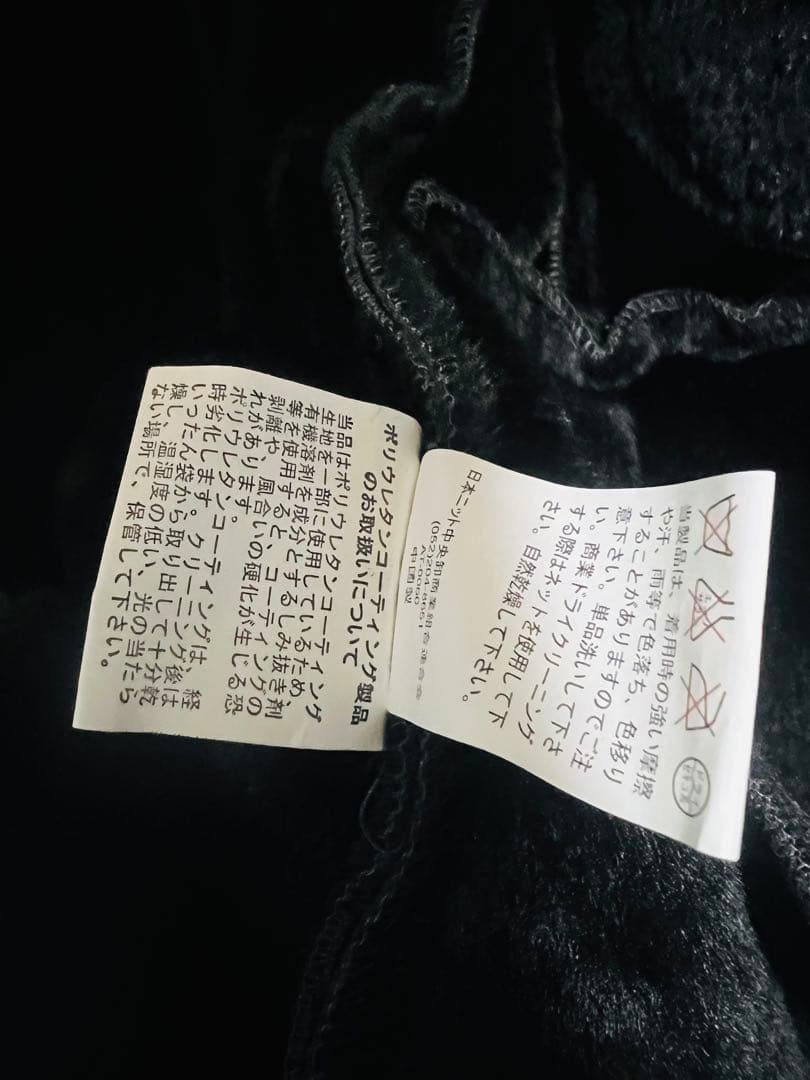 ポリウレタンコーティング製品
のお取扱いについて
当品はポリウレタンコーティング
生地を一部に使用しているため、
有機溶剤を成分とするしみ抜き剤
等を使用すると、コーティングの
剥離や、風合いの硬化が生じる恐
れがあります。
ポリウレタンコーティングは、経
時劣化します。クリーニング後は
いったん袋から取り出して十分乾
燥し、温湿度の低い、光の当たら
ない場所で、保管して下さい。
当製品は、着用時の強い摩擦
や汗、雨等で色落ち、色移り
することがありますのでご注
意下さい。単品洗いして下さ
い。商業ドライクリーニング
する際はネットを使用して下
さい。自然乾燥して下さい。
日本ニット中央卸商業組合連合会
(052)204-8661
AT-0060
中国製